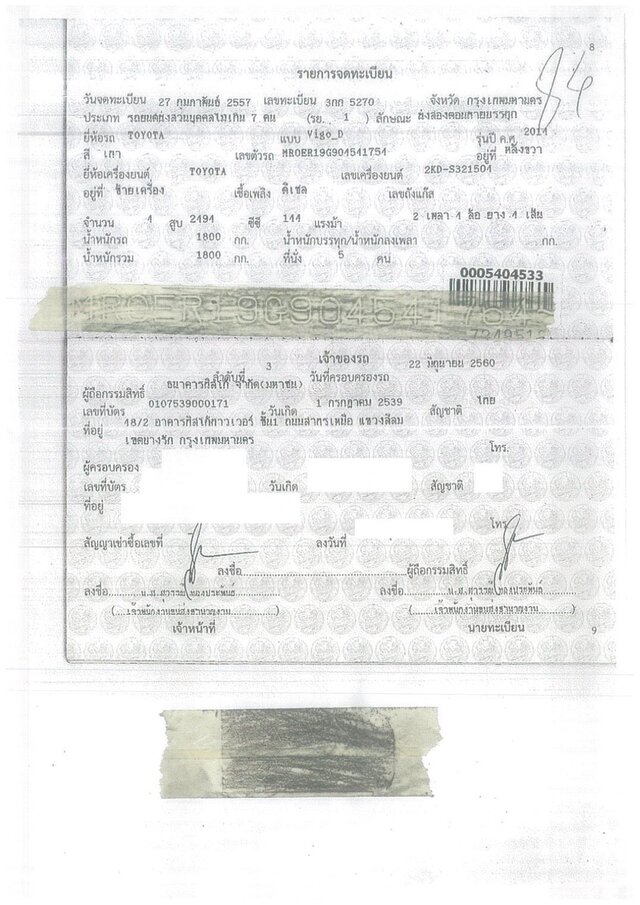 8
รายการจดทะเบียน
วันจดทะเบียน 27 กุมภาพันธ์ 2557 เลขทะเบียน 3กก 5270 จังหวัด กรุงเทพมหานคร
ประเภท รถยนต์นั่งส่วนบุคคลไม่เกิน 7 คน (รย. 1 ) ลักษณะ นั่งสองตอนท้ายบรรทุก
ยี่ห้อรถ TOYOTA แบบ Vigo_D รุ่นปี ค.ศ. 2014
สี เทา เลขตัวรถ MROER19G904541754 อยู่ที่ หลังขวา
ยี่ห้อเครื่องยนต์ TOYOTA เลขเครื่องยนต์ 2KD-S321504
อยู่ที่ ซ้ายเครื่อง เชื้อเพลิง ดีเซล เลขถังแก๊ส
จำนวน 4 สูบ 2494 ซีซี 144 แรงม้า 2 เพลา 4 ล้อ ยาง 4 เส้น
น้ำหนักรถ 1800 กก. น้ำหนักบรรทุก/น้ำหนักลงเพลา กก.
น้ำหนักรวม 1800 กก. ที่นั่ง 5 คน
0005404533
MROER19G904541754
เจ้าของรถ
ลำดับที่ 3 วันที่ครอบครองรถ 22 มิถุนายน 2560
ผู้ถือกรรมสิทธิ์ ธนาคารทิสโก้ จำกัด(มหาชน)
เลขที่บัตร 0107539000171 วันเกิด 1 กรกฎาคม 2539 สัญชาติ ไทย
ที่อยู่ 48/2 อาคารทิสโก้ทาวเวอร์ ชั้น1 ถนนสาทรเหนือ แขวงสีลม
เขตบางรัก กรุงเทพมหานคร โทร.
ผู้ครอบครอง
เลขที่บัตร วันเกิด สัญชาติ
ที่อยู่
โทร.
สัญญาเช่าซื้อเลขที่ ลงวันที่
ลงชื่อ ผู้ถือกรรมสิทธิ์
ลงชื่อ น.ส. ลงชื่อ น.ส.
(เจ้าพนักงานขนส่งชำนาญงาน) (เจ้าพนักงานขนส่งชำนาญงาน)
เจ้าหน้าที่ นายทะเบียน
9